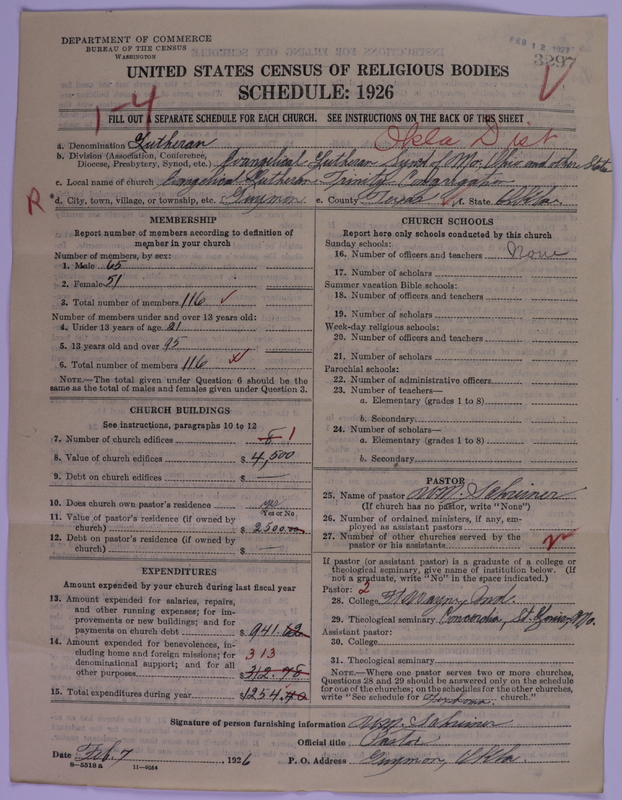 DEPARTMENT OF COMMERCE
BUREAU OF THE CENSUS
WASHINGTON
FEB 12 1927
3297
UNITED STATES CENSUS OF RELIGIOUS BODIES
SCHEDULE: 1926
1-4
FILL OUT A SEPARATE SCHEDULE FOR EACH CHURCH. SEE INSTRUCTIONS ON THE BACK OF THIS SHEET
Okla Dist
a. Denomination Lutheran
b. Division (Association, Conference, Diocese, Presbytery, Synod, etc.) Evangelical Lutheran Synod of Mo. Ohio and other States
c. Local name of church Evangelical Lutheran Trinity Congregation
R *d. City, town, village, or township, etc. Guymon e. County Texas f. State Okla.
MEMBERSHIP
Report number of members according to definition of
member in your church
Number of members, by sex:
1. Male 65
2. Female 51
3. Total number of members 116
Number of members under and over 13 years old:
4. Under 13 years of age 21
5. 13 years old and over 95
6. Total number of members 116
NOTE.—The total given under Question 6 should be the
same as the total of males and females given under Question 3.
CHURCH BUILDINGS
See instructions, paragraphs 10 to 12
7. Number of church edifices 1
8. Value of church edifices $ 4,500
9. Debt on church edifices $ —
10. Does church own pastor's residence yes
Yes or No
11. Value of pastor's residence (if owned by
church) $ 2500.00
12. Debt on pastor's residence (if owned by
church) $ —
EXPENDITURES
Amount expended by your church during last fiscal year
13. Amount expended for salaries, repairs,
and other running expenses; for im-
provements or new buildings; and for
payments on church debt $ 941.62
14. Amount expended for benevolences, in-
cluding home and foreign missions; for 313
denominational support; and for all
other purposes $ 312.78
15. Total expenditures during year $ 1254.40
CHURCH SCHOOLS
Report here only schools conducted by this church
Sunday schools:
16. Number of officers and teachers None
17. Number of scholars
Summer vacation Bible schools:
18. Number of officers and teachers
19. Number of scholars
Week-day religious schools:
20. Number of officers and teachers
21. Number of scholars
Parochial schools:
22. Number of administrative officers
23. Number of teachers—
a. Elementary (grades 1 to 8)
b. Secondary
24. Number of scholars—
a. Elementary (grades 1 to 8)
b. Secondary
PASTOR
25. Name of pastor Wm. Schreiner
(If church has no pastor, write "None")
26. Number of ordained ministers, if any, em-
ployed as assistant pastors
27. Number of other churches served by the
pastor or his assistants
If pastor (or assistant pastor) is a graduate of a college or
theological seminary, give name of institution below. (If
not a graduate, write "No" in the space indicated.)
Pastor: 2
28. College Ft Wayne, Ind.
29. Theological seminary Concordia, St. Louis, Mo.
Assistant pastor:
30. College
31. Theological seminary
NOTE.—Where one pastor serves two or more churches,
Questions 28 and 29 should be answered only on the schedule
for one of the churches; on the schedules for the other churches,
write "See schedule for church."
Signature of person furnishing information Wm. Schreiner
Official title Pastor
Date Feb. 7 1926 P. O. Address Guymon, Okla.
8-5518 a 11-9064